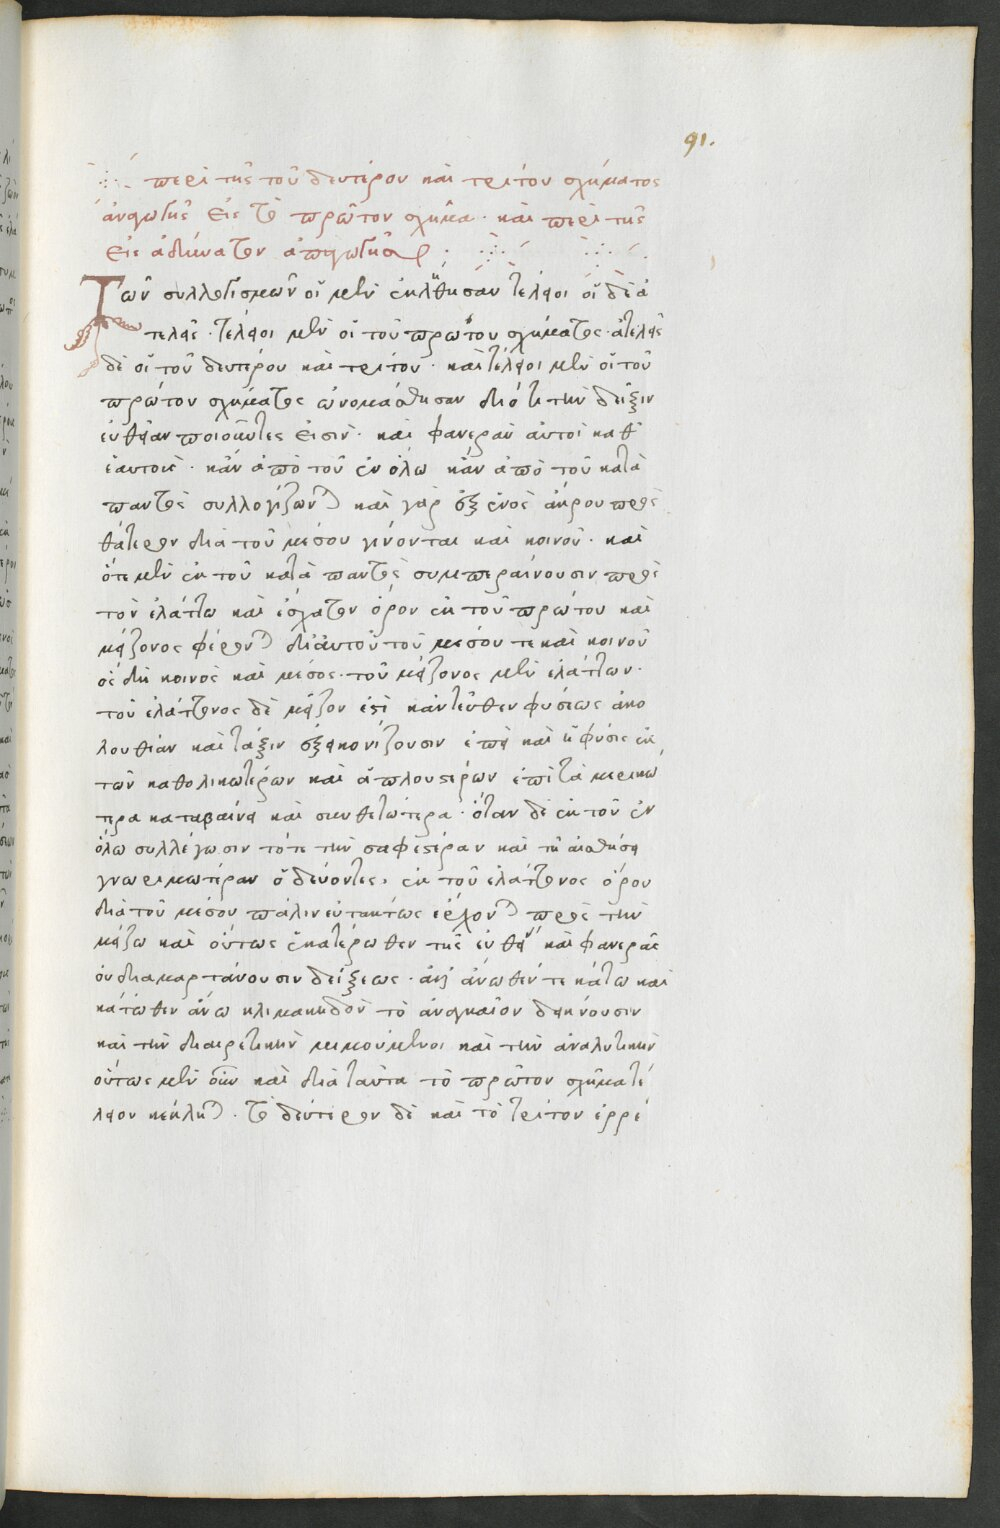 91.
περὶ τῆς τοῦ δευτέρου καὶ τρίτου σχήματος
ἀναγωγῆς εἰς τὸ πρῶτον σχῆμα · καὶ περὶ τῆς
εἰς ἀδύνατον ἀπαγωγῆς
Τῶν συλλογισμῶν οἱ μὲν ἐκλήθησαν τέλειοι οἱ δὲ ἀ
τελεῖς · τέλειοι μὲν οἱ τοῦ πρώτου σχήματος · ἀτελεῖς
δὲ οἱ τοῦ δευτέρου καὶ τρίτου · καὶ τέλειοι μὲν οἱ τοῦ
πρώτου σχήματος ὠνομάσθησαν διότι τὴν δεῖξιν
εὐθεῖαν ποιοῦντες εἰσὶν · καὶ φανερὰν αὐτοὶ καθ'
ἑαυτοὺς · κἂν ἀπὸ τοῦ ἐν ὅλω κἂν ἀπὸ τοῦ κατὰ
παντὸς συλλογίζωνται καὶ γὰρ ἐξ ἑνὸς ἄκρου πρὸς
θάτερον διὰ τοῦ μέσου γίνονται καὶ κοινοῦ · καὶ
ὅτε μὲν ἐκ τοῦ κατὰ παντὸς συμπεραίνουσιν πρὸς
τὸν ἐλάττω καὶ ἔσχατον ὅρον ἐκ τοῦ πρώτου καὶ
μείζονος φέρονται δι' αὐτοῦ τοῦ μέσου τε καὶ κοινοῦ
ὃς δὴ κοινὸς καὶ μέσος · τοῦ μείζονος μὲν ἐλάττων ·
τοῦ ἐλάττονος δὲ μείζον ἐστὶ κἀντεῦθεν φύσεως ἀκο
λουθίαν καὶ τάξιν ἐξεικονίζουσιν ἐπεὶ καὶ ἡ φύσις ἐκ
τῶν καθολικωτέρων καὶ ἁπλουστέρων ἐπὶ τὰ μερικώ
τερα καταβαίνει καὶ συνθετώτερα · ὅταν δὲ ἐκ τοῦ ἐν
ὅλω συλλέγωσιν τότε τὴν σαφεστέραν καὶ τῇ αἰσθήσει
γνωριμωτέραν ὁδεύοντες, ἐκ τοῦ ἐλάττονος ὅρου
διὰ τοῦ μέσου πάλιν εὐτάκτως ἔρχονται πρὸς τὴν
μείζω καὶ οὕτως ἑκατέρωθεν τῆς εὐθείας καὶ φανερᾶς
οὐ διαμαρτάνουσιν δείξεως · ἀλλ' ἄνωθέν τε κάτω καὶ
κάτωθεν ἄνω κλιμακηδὸν τὸ ἀναγκαῖον δεικνύουσιν
καὶ τὴν διαιρετικὴν μιμούμενοι καὶ τὴν ἀναλυτικὴν
οὕτως μὲν οὖν καὶ διὰ ταῦτα τὸ πρῶτον σχῆμα τέ
λειον κέκληται · τὸ δεύτερον δὲ καὶ τὸ τρίτον ἐρρέ